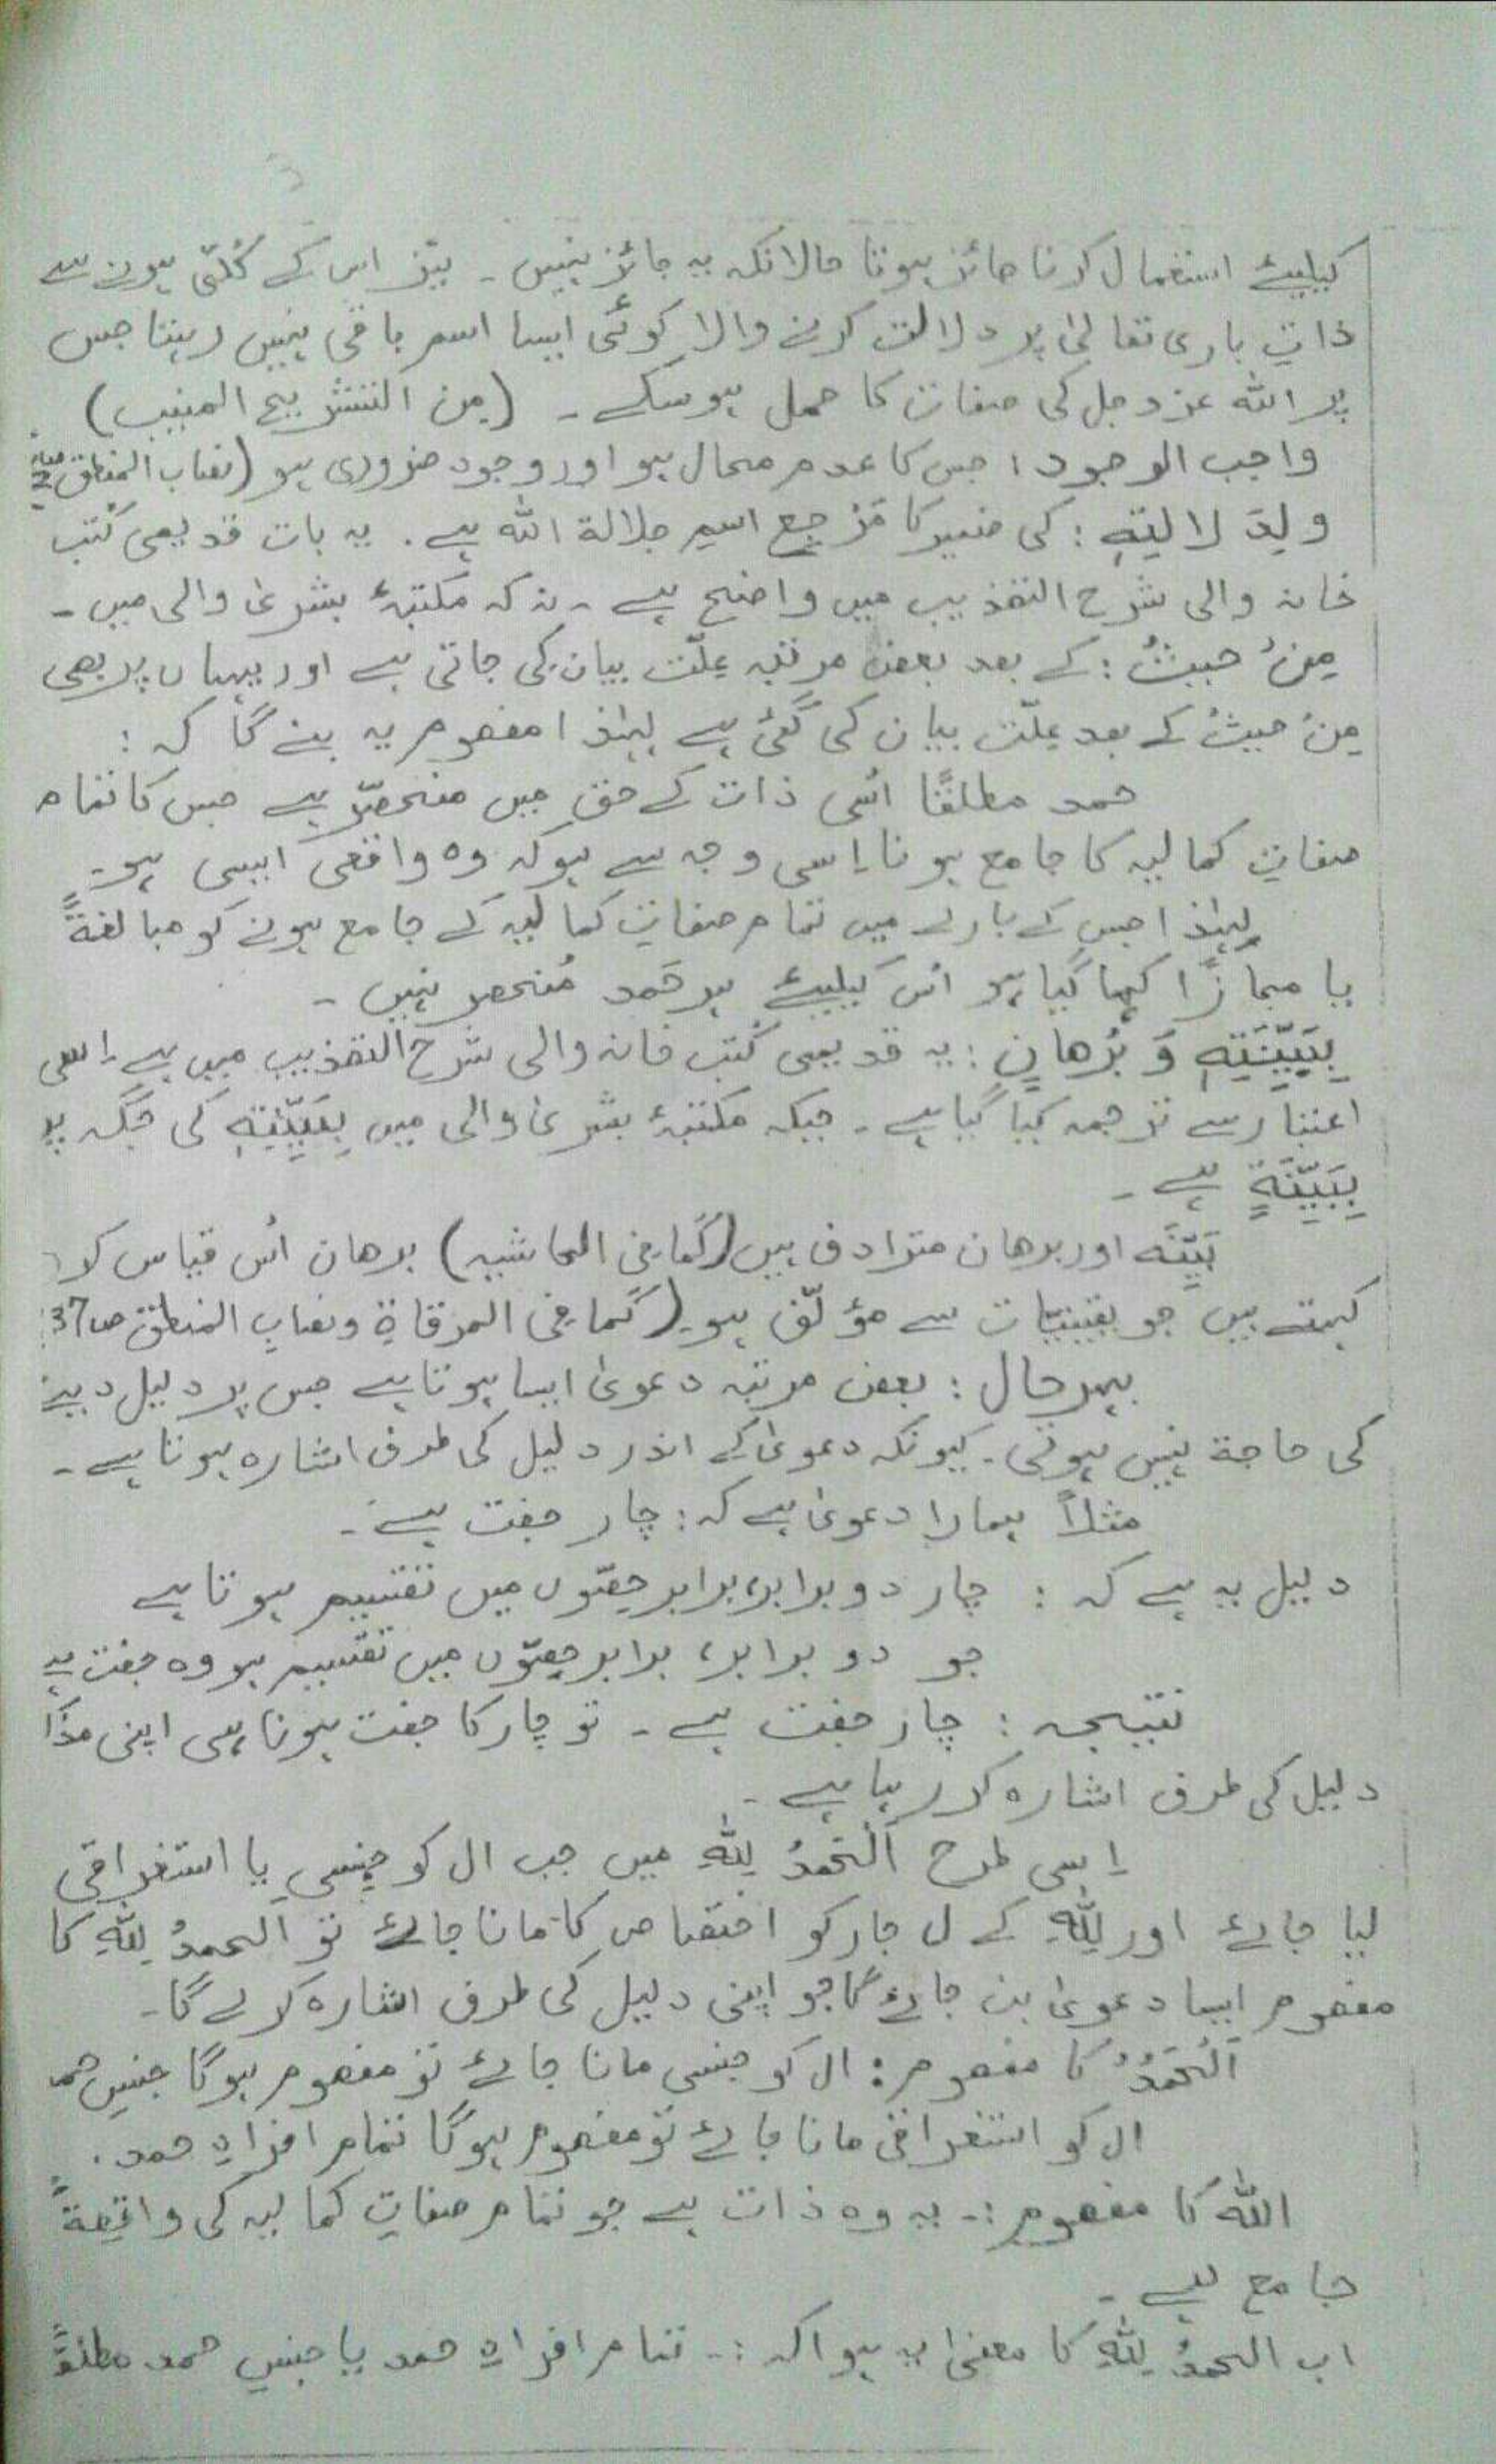 کیلیئے استعمال کرنا جائز ہوتا حالانکہ یہ جائز نہیں ۔ نیز اس کے کُلّی ہونے سے
ذاتِ باری تعالیٰ پر دلالت کرنے والا کوئی ایسا اسم باقی نہیں رہتا جس
پر اللہ عزوجل کی صفات کا حمل ہوسکے ۔ (من التشریح المنیب)
واجب الوجود : جس کا عدم محال ہو اور وجود ضروری ہو (نصاب المنطق
ولِدَلالتِہٖ : کی ضمیر کا مَرْجِع اسمِ جلالۃ اللہ ہے . یہ بات قدیمی کُتب
خانہ والی شرح التھذیب میں واضح ہے ۔ نہ کہ مکتبۂ بشریٰ والی میں ۔
مِنْ حیثُ : کے بعد بعض مرتبہ علّت بیان کی جاتی ہے اور یہاں پر بھی
مِنْ حیثُ کے بعد علّت بیان کی گئی ہے لہٰذا مفھوم یہ بنے گا کہ :
حمد مطلقًا اُسی ذات کے حق میں منحصّر ہے جس کا تمام
صفاتِ کمالیہ کا جامع ہونا اِسی وجہ سے ہو کہ وہ واقعی ایسی ہو ۔
لہٰذا جس کے بارے میں تمام صفاتِ کمالیہ کے جامع ہونے کو مبالغۃً
یا مجازًا کہا گیا ہو اُس کیلیئے ہر حَمد مُنحصر نہیں ۔
بِبَیِّنَتِہٖ وَ بُرْھانٍ : یہ قدیمی کُتب خانہ والی شرح التھذیب میں ہے اِسی
اعتبار سے ترجمہ کیا گیا ہے ۔ جبکہ مکتبۂ بشریٰ والی میں بِبَیِّنَتِہٖ کی جگہ پر
بِبَیِّنَةٍ ہے ۔
بَیِّنَہ اور برھان مترادف ہیں (کَمَا فِی الحاشیہ) برھان اُس قیاس کو
کہتے ہیں جو یقینیّات سے مؤلّف ہو ۔ (کَما فِی المرقاۃِ و نصابِ المنطق ص37
بہرحال : بعض مرتبہ دعویٰ ایسا ہوتا ہے جس پر دلیل دینے
کی حاجۃ نہیں ہوتی ۔ کیونکہ دعویٰ کے اندر دلیل کی طرف اشارہ ہوتا ہے ۔
مثلاً ہمارا دعویٰ ہے کہ : چار جفت ہے ۔
دلیل یہ ہے کہ : چار دو برابر، برابر حِصّوں میں تقسیم ہوتا ہے
جو دو برابر، برابر حِصّوں میں تقسیم ہو وہ جفت ہے
نتیجہ : چار جفت ہے ۔ تو چار کا جفت ہونا ہی اپنی
دلیل کی طرف اشارہ کر رہا ہے ۔
اِسی طرح اَلْحَمْدُ لِلّٰہِ میں جب ال کو جِنسی یا استغراقی
لیا جائے اور لِلّٰہِ کے ل جار کو اختصاص کا مانا جائے تو اَلحمدُ لِلّٰہِ کا
مفھوم ایسا دعویٰ بن جائے گا جو اپنی دلیل کی طرف اشارہ کرے گا ۔
اَلْحَمْدُ کا مفھوم : ال کو جنسی مانا جائے تو مفھوم ہوگا جنسِ حمد
ال کو استغراقی مانا جائے تو مفھوم ہوگا تمام افرادِ حمد .
اللہ کا مفھوم :۔ یہ وہ ذات ہے جو تمام صفاتِ کمالیہ کی واقِعۃً
جامع ہے ۔
اب الحمدُ لِلّٰہِ کا معنیٰ یہ ہوا کہ :۔ تمام افرادِ حمد یا جنسِ حمد مطلقًا